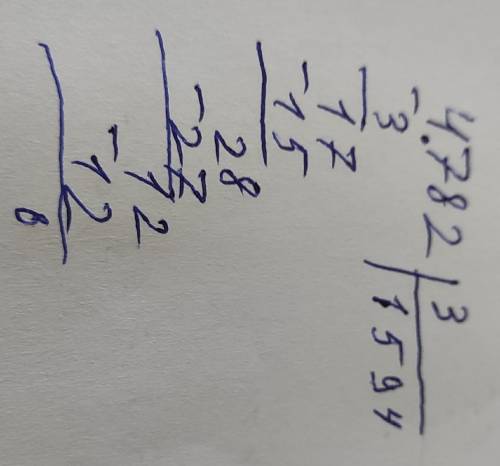 4.782 | 3
-3 1594
17
-15
28
-27
12
-12
0